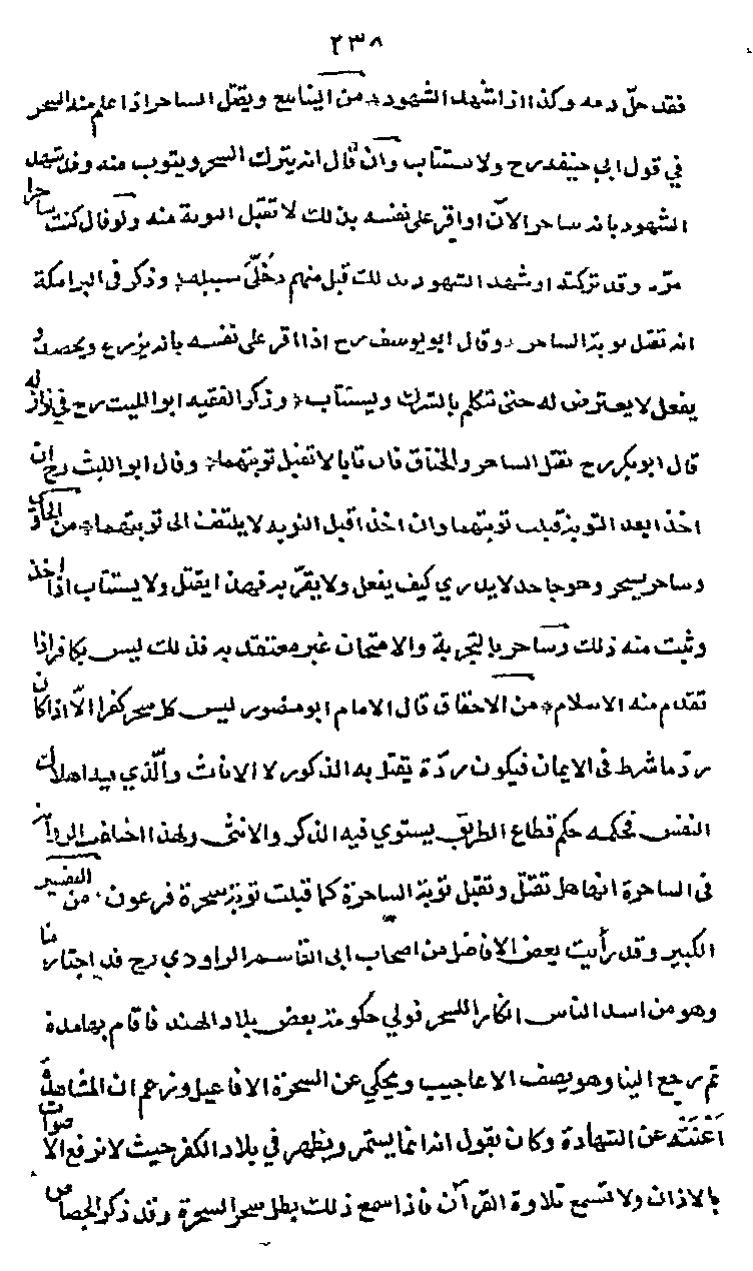 ٢٣٨
فقد حلّ دمه وكذا اذا شهد الشهود * من الينابيع ويقتل الساحر اذا علم منه السحر
في قول ابي حنيفه رح ولا يستتاب وان قال انه يترك السحر ويتوب منه وقد شهد
الشهود بانه ساحر الآن او اقر على نفسه بذلك لا تقبل التوبة منه ولو قال كنت ساحرا
مرّة وقد تركته او شهد الشهود بذلك قبل منهم وخُلِّىَ سبيله * وذكر فى البرامكة
انه تقبل توبة الساحر * وقال ابو يوسف رح اذا اقر على نفسه بانه يزرع ويحصد و
يفعل لا يعترض له حتى تتكلم بالشرك ويستتاب * وذكر الفقيه ابو الليث رح في نوازله
قال ابو بكر رح يقتل الساحر والخناق فان تابا لا تقبل توبتهما * وقال ابو الليث رح ان
اخذا بعد التوبة قبلت توبتهما وان اخذا قبل التوبه لا يلتفت الى توبتهما * من
وساحر يسحر وهو جاحد لا يدري كيف يفعل ولا يقرّ به فهذا يقتل ولا يستتاب اذا اخذ
وثبت منه ذلك وساحر بالتجربة والامتحان غير معتقد به فذلك ليس بكافر اذا
تقدم منه الاسلام * من الاحقاق قال الامام ابو منصور ليس كل سحر كفرا الّا اذا كان
ردّ ما شرط فى الايمان فيكون ردّة يقتل به الذكور لا الاناث والّذي بيد اهلاك
النفس فحكمه حكم قطاع الطريق يستوي فيه الذكر والانثى ولهذا اختلف الرواية
فى الساحرة انها هل تقتل وتقبل توبة الساحرة كما قبلت توبة سحرة فرعون * من التفسير
الكبير وقد رأيت بعض الافاضل من اصحاب ابى القاسم الراودي رح قد اجتاز منا
وهو من اشد الناس انكارا للسحر فولي حكومة بعض بلاد الهند فاقام بها مدة
ثم رجع الينا وهو يصف الاعاجيب ويحكي عن السحرة الافاعيل وزعم ان المشاهدة
اَغْنَتْه عن الشهادة وكان يقول انه انما يستمر ويظهر في بلاد الكفر حيث لا ترفع الاصوات
بالاذان ولا تسمع تلاوة القرآن فاذا سمع ذلك بطل سحر السحرة وقد ذكر الجصاص